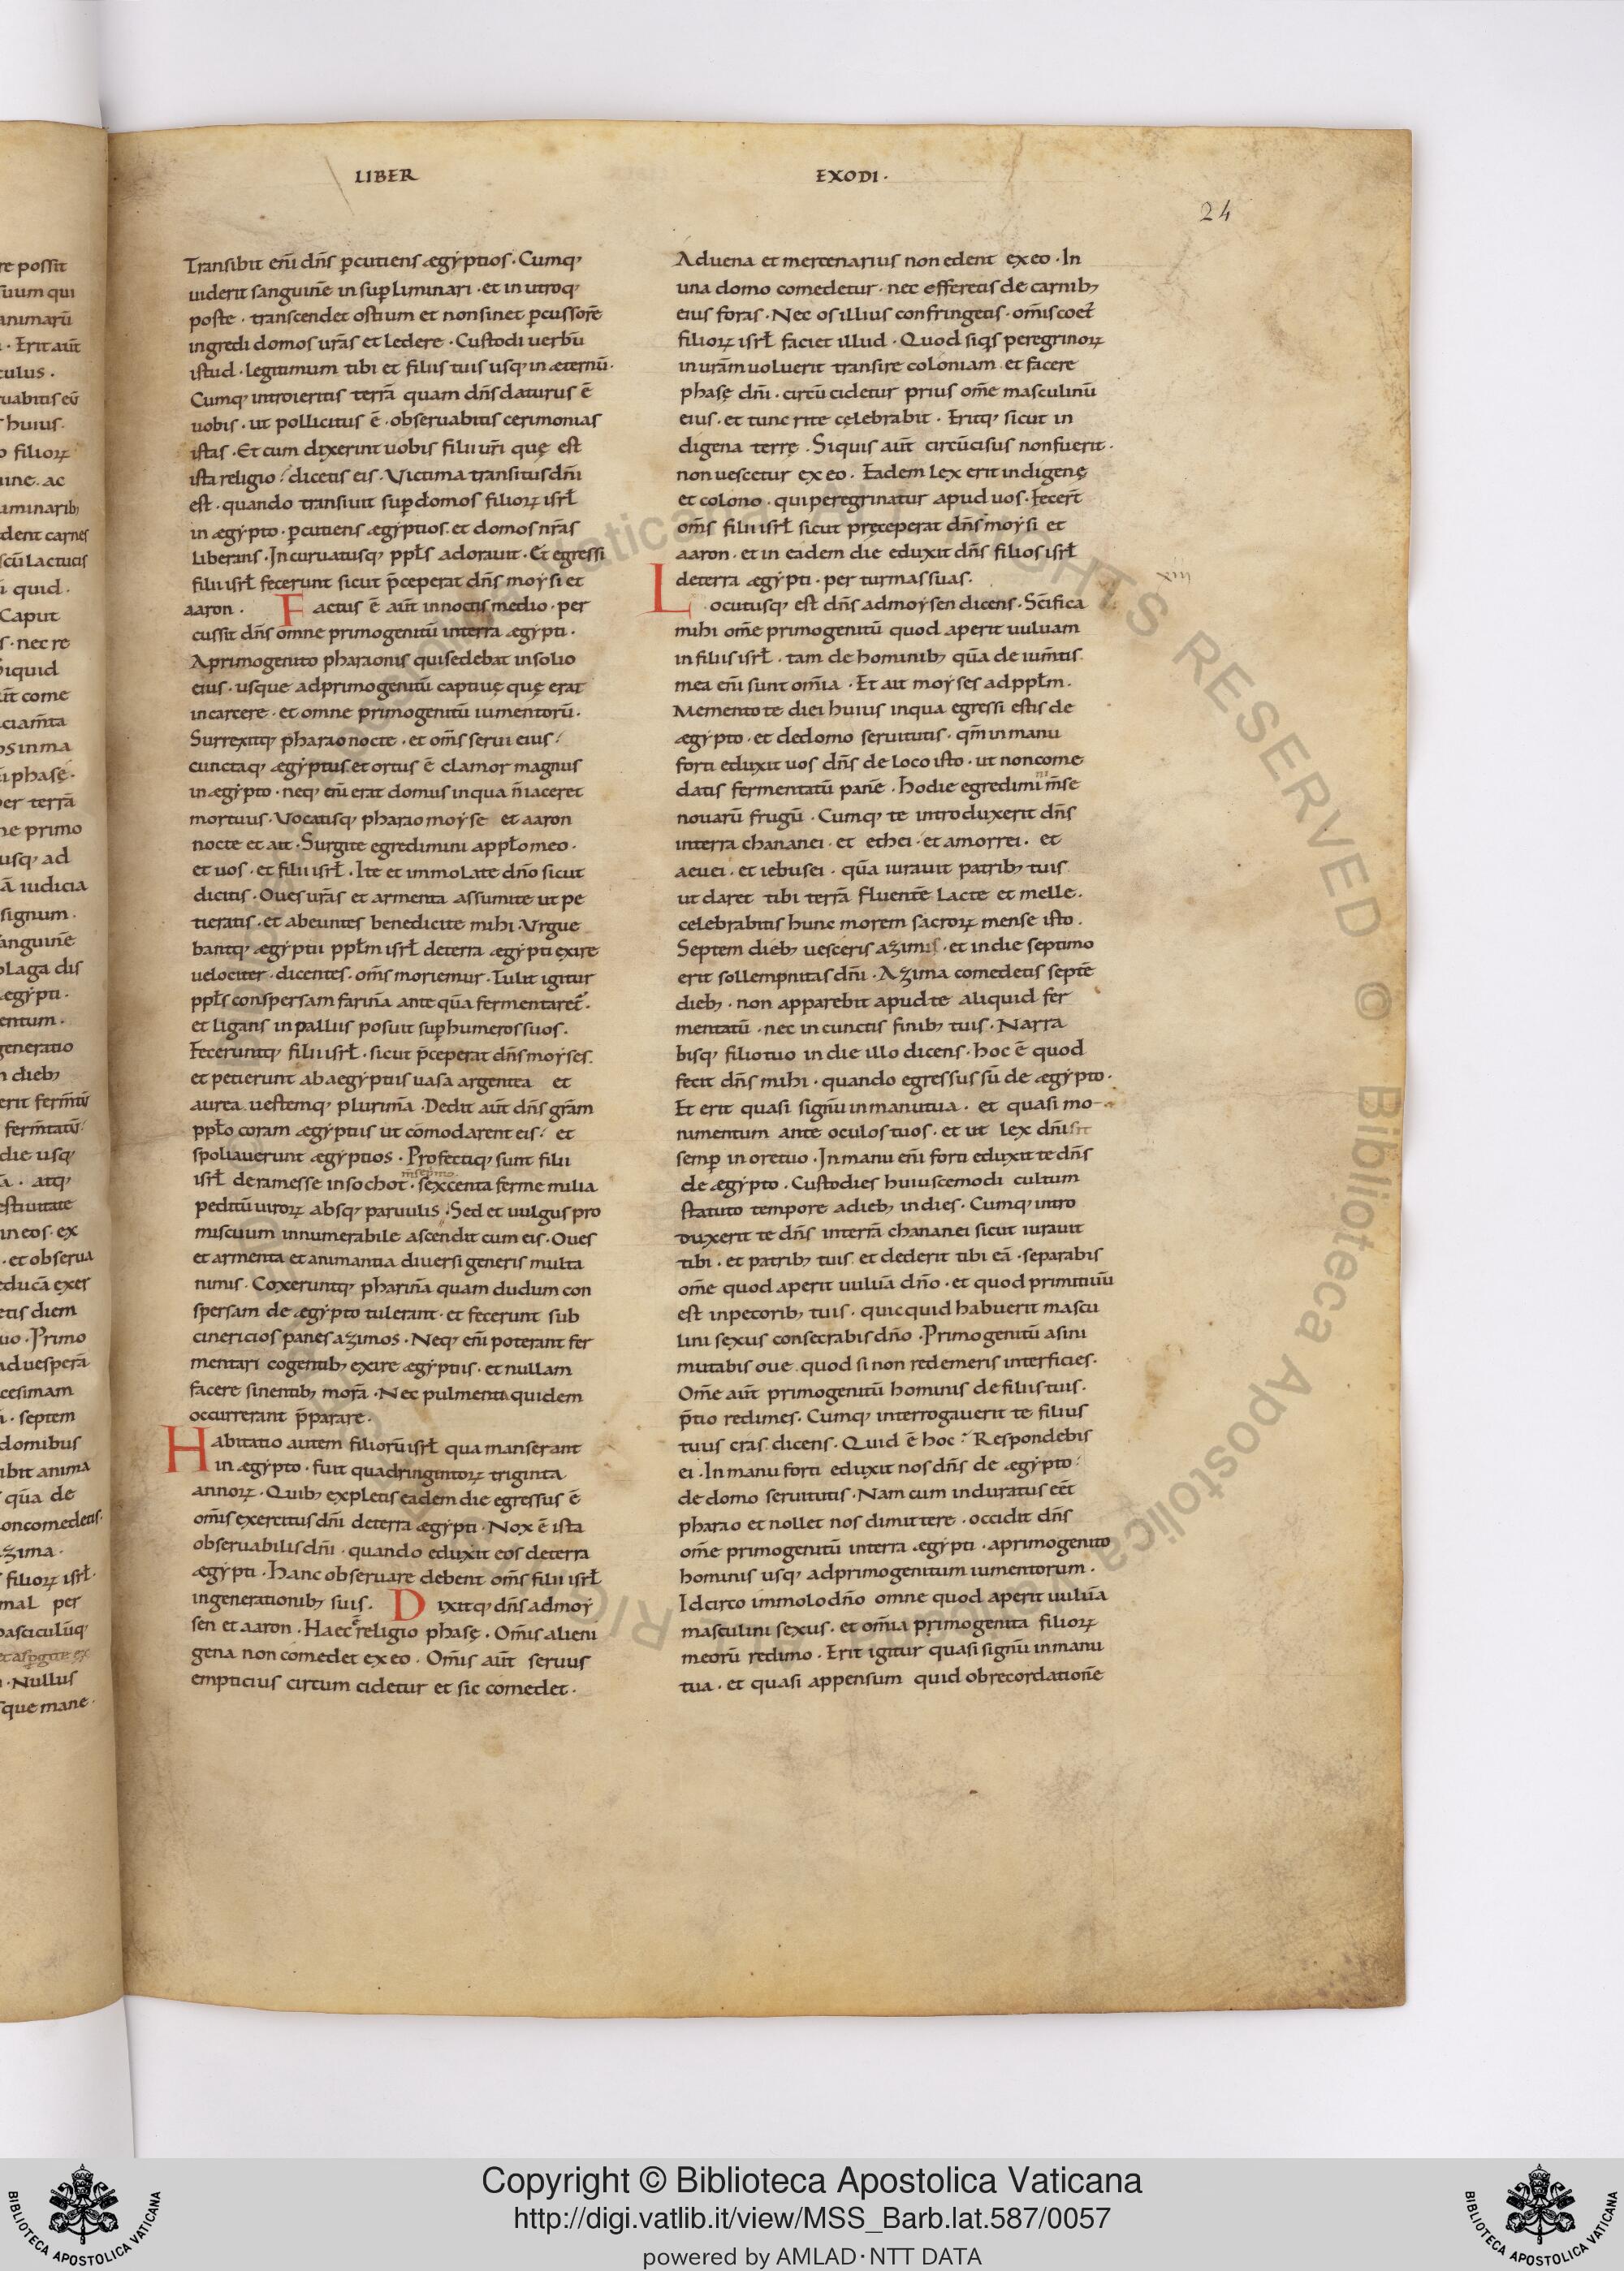 LIBER
EXODI·
24
Transibit eni̅ dn̅s ꝑcutiens ægẏptios · Cumq;
uiderit sanguine̅ in suꝑliminari · et in utroq;
poste · transcendet ostium et non sinet ꝑcussore̅
ingredi domos ur̅as et ledere · Custodi uerbu̅
istud · legitimum tibi et filiis tuis usq; in æternu̅ ·
Cumq; introieritis terra̅ quam dn̅s daturus e̅
uobis · ut pollicitus e̅ · obseruabitis cerimonias
istas · Et cum dixerint uobis filii ur̅i quę est
ista religio? dicetis eis · Victima transitus dn̅i
est · quando transiuit suꝑ domos filioꝝ isrł
in ægẏpto · ꝑcutiens ægẏptios et domos nr̅as
liberans · Incuruatusq; ppłs adorauit · Et egressi
filii isrł fecerunt sicut p̅ceperat dn̅s moẏsi et
aaron · Factus e̅ aut̅ in noctis medio · per
cussit dn̅s omne primogenitu̅ in terra ægẏpti ·
A primogenito pharionis qui sedebat in solio
eius · usque ad primogenitu̅ captiuę quę erat
in carcere · et omne primogenitu̅ iumentoru̅ ·
Surrexitq; pharao nocte · et om̅s serui eius
cunctaq; ægẏptus et ortus e̅ clamor magnus
in ægẏpto · neq; eni̅ erat domus in qua n̅ iaceret
mortuus · Vocatisq; pharao moẏse et aaron
nocte et ait · Surgite egredimini a ppło meo ·
et uos · et filii isrł · Ite et immolate dn̅o sicut
dicitis · Oues ur̅as et armenta assumite ut pe
tieratis · et abeuntes benedicite mihi · Vrgue
bantq; ægẏptii ppłm isrł de terra ægẏpti exire
uelociter · dicentes · om̅s moriemur · Tulit igitur
ppłs conspersam farina̅ ante qua̅ fermentaret̅ ·
et ligans in palliis posuit suꝑ humeros suos ·
Feceruntq; filii isrł · sicut p̅ceperat dn̅s moẏses
et petierunt ab aegẏptiis uasa argentea et
aurea uestemq; plurima̅ · Dedit aut̅ dn̅s gra̅m
ppło coram ægẏptiis ut co̅modarent eis · et
spoliauerunt ægẏptios · Profectiq; sunt filii
isrł de ramesse in sochot · sexcenta ferme milia
peditu̅ uiroꝝ absq; paruulis · Sed et uulgus pro
miscuum innumerabile ascendit cum eis · Oues
et armenta et animantia diuersi generis multa
nimis · Coxeruntq; pharina̅ quam dudum con
spersam de ægẏpto tulerant · et fecerunt sub
cinericios panes azimos · Neq; eni̅ poterant fer
mentari cogentib; exire ægẏptiis · et nullam
facere sinentib; mora̅ · Nec pulmenta quidem
occurrerant p̅parare ·
Habitatio autem filioru̅ isrł qua manserant
in ægẏpto · fuit quadringintoꝝ triginta
annoꝝ · Quib; expletis eadem die egressus e̅
om̅is exercitus dn̅i de terra ægẏpti · Nox e̅ ista
obseruabilis dn̅i · quando eduxit eos de terra
ægẏpti · Hanc obseruare debent om̅s filii isrł
in generationib; suis · Dixitq; dn̅s ad moẏ
sen et aaron · Haec e̅ religio phasę · Om̅is alieni
gena non comedet ex eo · Om̅is aut̅ seruus
empticius circum cidetur et sic comedet ·
Aduena et mercenarius non edent ex eo · In
una domo comedetur · nec efferetis de carnib;
eius foras · Nec os illius confringetis · om̅is coet̅
filioꝝ isrł faciet illud · Quod si q̅s peregrinoꝝ
in ura̅m uoluerit transire coloniam et facere
phasę dn̅i · circu̅cidetur prius om̅e masculinu̅
eius · et tunc rite cęlebrabit · Eritq; sicut in
digena terrę · Siquis aut̅ circu̅cisus non fuerit ·
non uescetur ex eo · Eadem lex erit indigenę
et colono · qui peregrinatur apud uos · Fecer̅t
om̅s filii isrł sicut pręceperat dn̅s moẏsi et
aaron · et in eadem die eduxit dn̅s filios isrł
de terra ægẏpti · per turmas suas ·
xiii
Locutusq; est dn̅s ad moẏsen dicens · Sc̅ifica
mihi om̅e primogenitu̅ quod aperit uuluam
in filiis isrł · tam de hominib; qua̅ de ium̅tis
mea eni̅ sunt om̅ia · Et ait moẏses ad ppłm ·
Mementote diei huius in qua egressi estis de
ægẏpto · et de domo seruitutis · qm̅ in manu
forti eduxit uos dn̅s de loco isto · ut non come
datis fermentatu̅ pane̅ · Hodie egredimini m̅se
nouaru̅ frugu̅ · Cumq; te introduxerit dn̅s
in terra chananei · et ethei · et amorrei · et
aeuei · et iebusei · qua̅ iurauit patrib; tuis
ut daret tibi terra̅ fluente̅ lacte et melle ·
celebrabitis hunc morem sacroꝝ mense isto ·
Septem dieb; uesceris azimis · et in die septimo
erit sollempnitas dn̅i · Azima comedetis septe̅
dieb; · non apparebit apud te aliquid fer
mentatu̅ · nec in cunctis finib; tuis · Narra
bisq; filio tuo in die illo dicens · hoc e̅ quod
fecit dn̅s mihi · quando egressus su̅ de ægẏpto ·
Et erit quasi signu̅ in manu tua · et quasi mo
nimentum ante oculos tuos · et ut lex dn̅i sit
semꝑ in ore tuo · In manu eni̅ forti eduxit te dn̅s
de ægẏpto · Custodies huiuscemodi cultum
statuto tempore a dieb; in dies · Cumq; intro
duxerit te dn̅s in terra̅ chananei sicut iurauit
tibi · et patrib; tuis et dederit tibi ea̅ · separabis
om̅e quod aperit uulua̅ dn̅o · et quod primitiuu̅
est in pecorib; tuis · quicquid habuerit mascu
lini sexus consecrabis dn̅o · Primogenitu̅ asini
mutabis oue · quod si non redemeris interficies ·
Om̅e aut̅ primogenitu̅ hominis de filiis tuis ·
p̅tio redimes · Cumq; interrogauerit te filius
tuus cras dicens · Quid e̅ hoc? Respondebis
ei · In manu forti eduxit nos dn̅s de ægẏpto
de domo seruitutis · Nam cum induratus ee̅t
pharao et nollet nos dimittere · occidit dn̅s
om̅e primogenitu̅ in terra ægẏpti · a primogenito
hominis usq; ad primogenitum iumentorum ·
Idcirco immolo dn̅o omne quod aperit uulua̅
masculini sexus · et om̅ia primogenita filioꝝ
meoru̅ redimo · Erit igitur quasi signu̅ in manu
tua · et quasi appensum quid ob recordatione̅
Copyright © Biblioteca Apostolica Vaticana
http://digi.vatlib.it/view/MSS_Barb.lat.587/0057
powered by AMLAD·NTT DATA
BIBLIOTECA APOSTOLICA VATICANA
BIBLIOTECA APOSTOLICA VATICANA